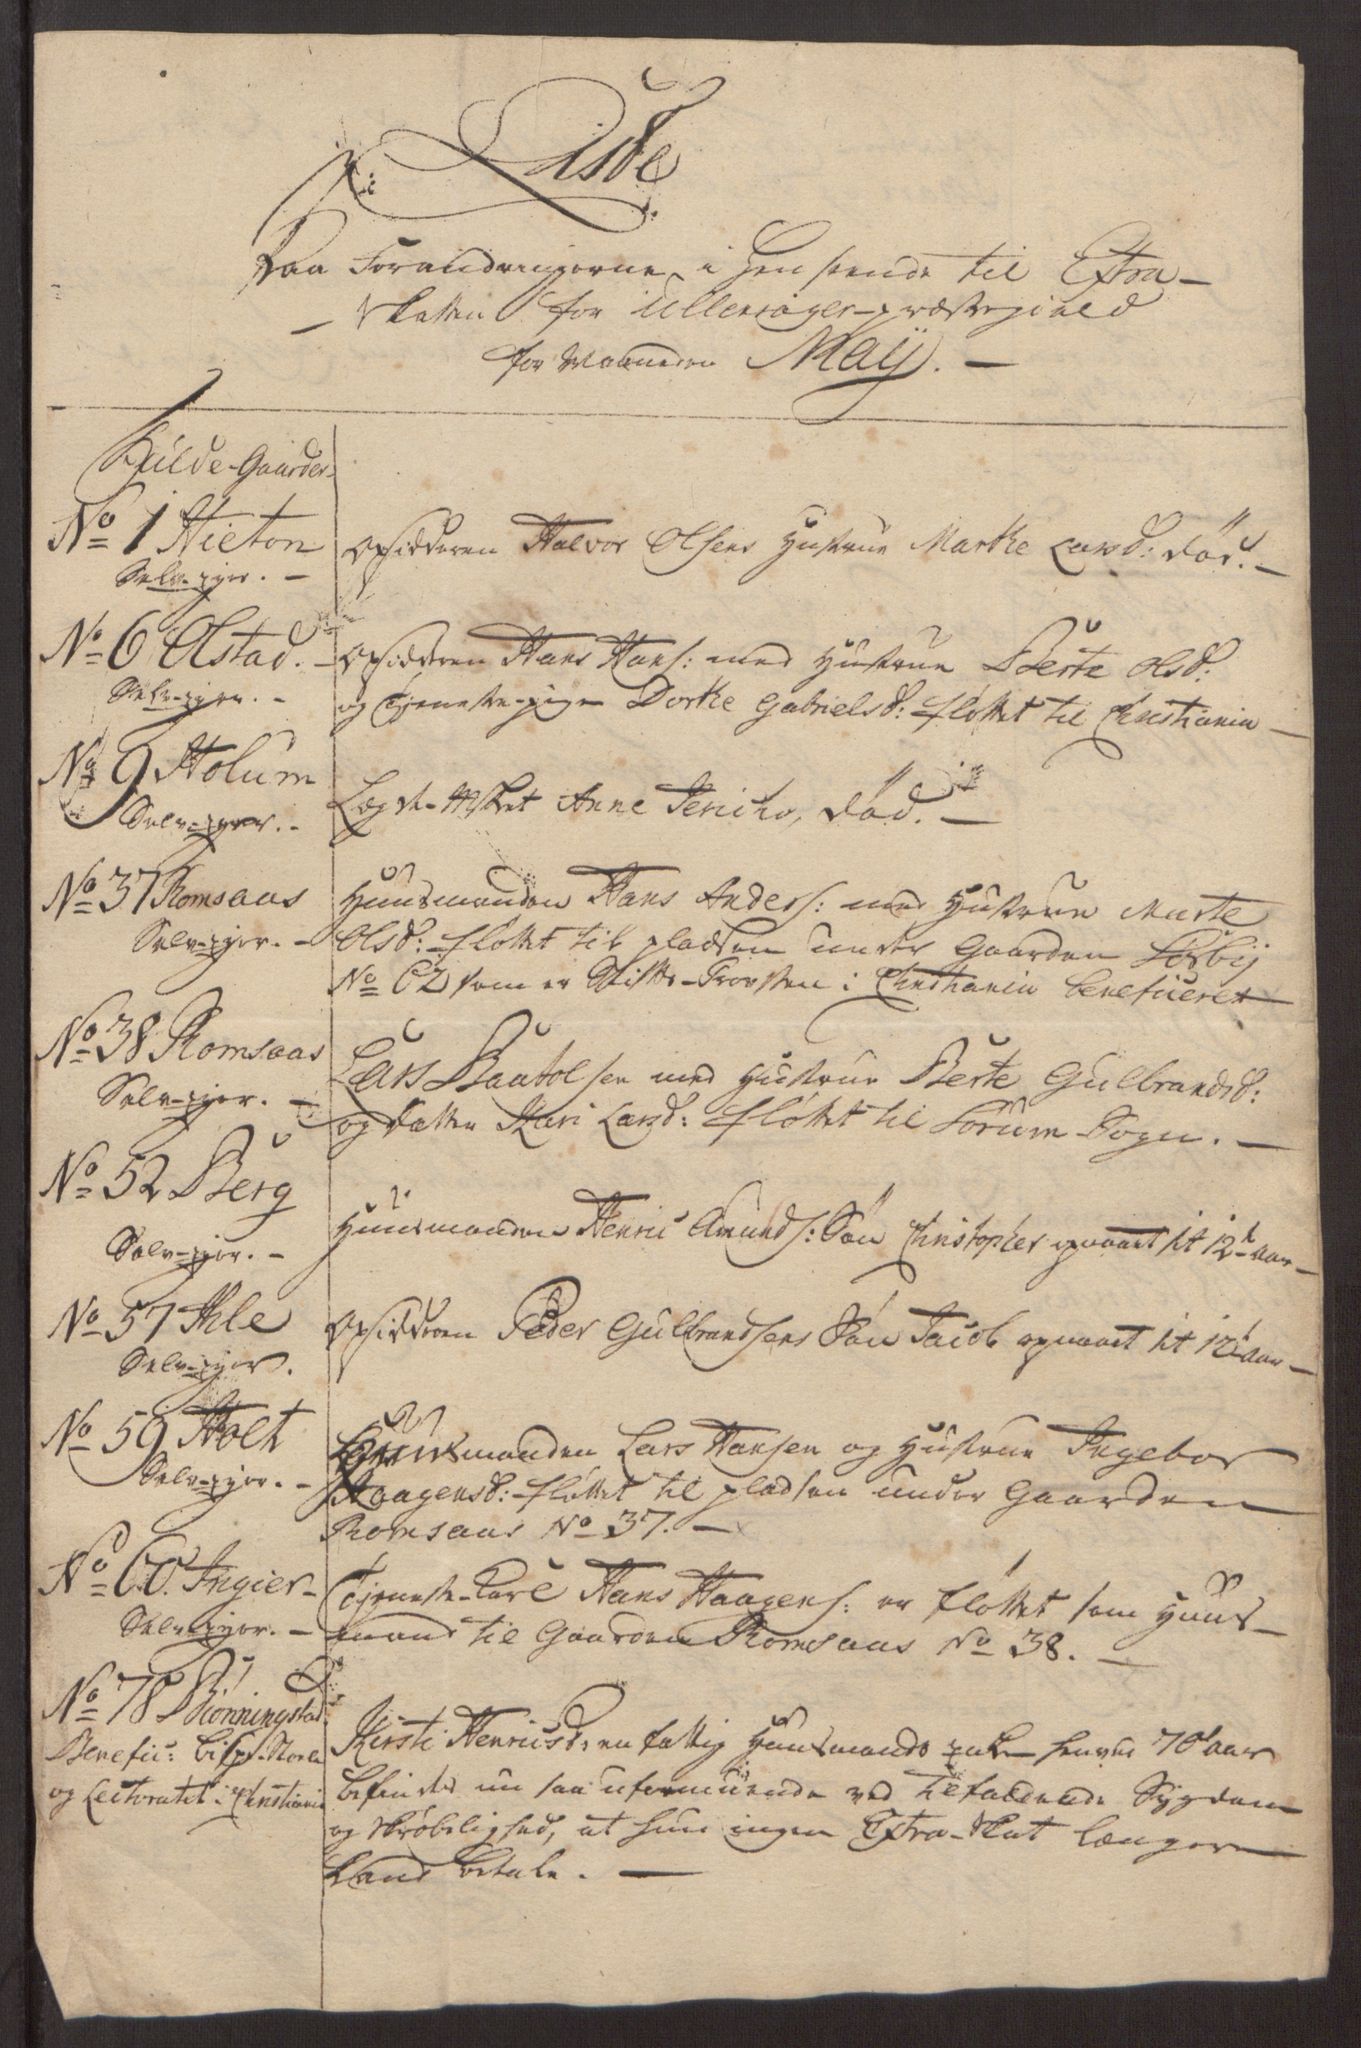 Liste
Paa Forandringerne i Henseende til Extra-
skatten for Ullensager-præstegield
for Maaneden Maij. -
Fulde-Gaarder
No 1 Hieton
Selv-Ejer. -
Opsidderen Halvor Olsens Hustrue Marthe Larsd: død. -
No 6 Olstad. -
Selv-ejer. -
Opsidderen Hans Hans: med Hustrue Berte Olsd:
og Tjeneste-pige Dorthe Gabrielsd: fløttet til Christiania -
No 9 Holum
Selv-ejer. -
Lægds-Anne Jericho, død. -
No 37 Romsaas
Selv-ejer. -
Huusmanden Hans Anders: med Hustrue Marte
Olsd: fløttet til pladsen under Gaarden Sørbij
No 62 som er Stifts-Provsten i Christiania beneficeret
No 38 Romsaas
Selv-ejer. -
Lars Baatolsen med Hustrue Berte Gulbrandsd:
og datter Kari Larsd: fløttet til Sørum Sogn. -
No 52 Berg
Selv-ejer. -
Huusmanden Henric Amunds: Søn Christopher opnaaet sit 12te Aar -
No 57 Ihle
Selv-ejer.
Opsidderen Peder Gulbrandsens Søn Jacob opnaaet sit 12te Aar -
No 59 Holt
Selv-ejer. -
Huusmanden Lars Hansen og Hustrue Ingebor
Haagensd: fløttet til pladsen under Gaarden
Romsaas No 37. -
No 60. Ingier-
Selv-ejer. -
Tjeneste-Karl Hans Haagens: er fløttet som Huus-
mand til Gaarden Romsaas No 38. -
No 78 Rönningstad
Benefic: bisp-Stolen
og Lectoratet i Christiania
Kirsti Henricsd: en fattig Huusmands Enke henved 70 Aar
befindes nu saa uformuende ved tilfaldende Sygdom
og skrøbelighed, at hun ingen Extra-Skat længere
kand betale. -